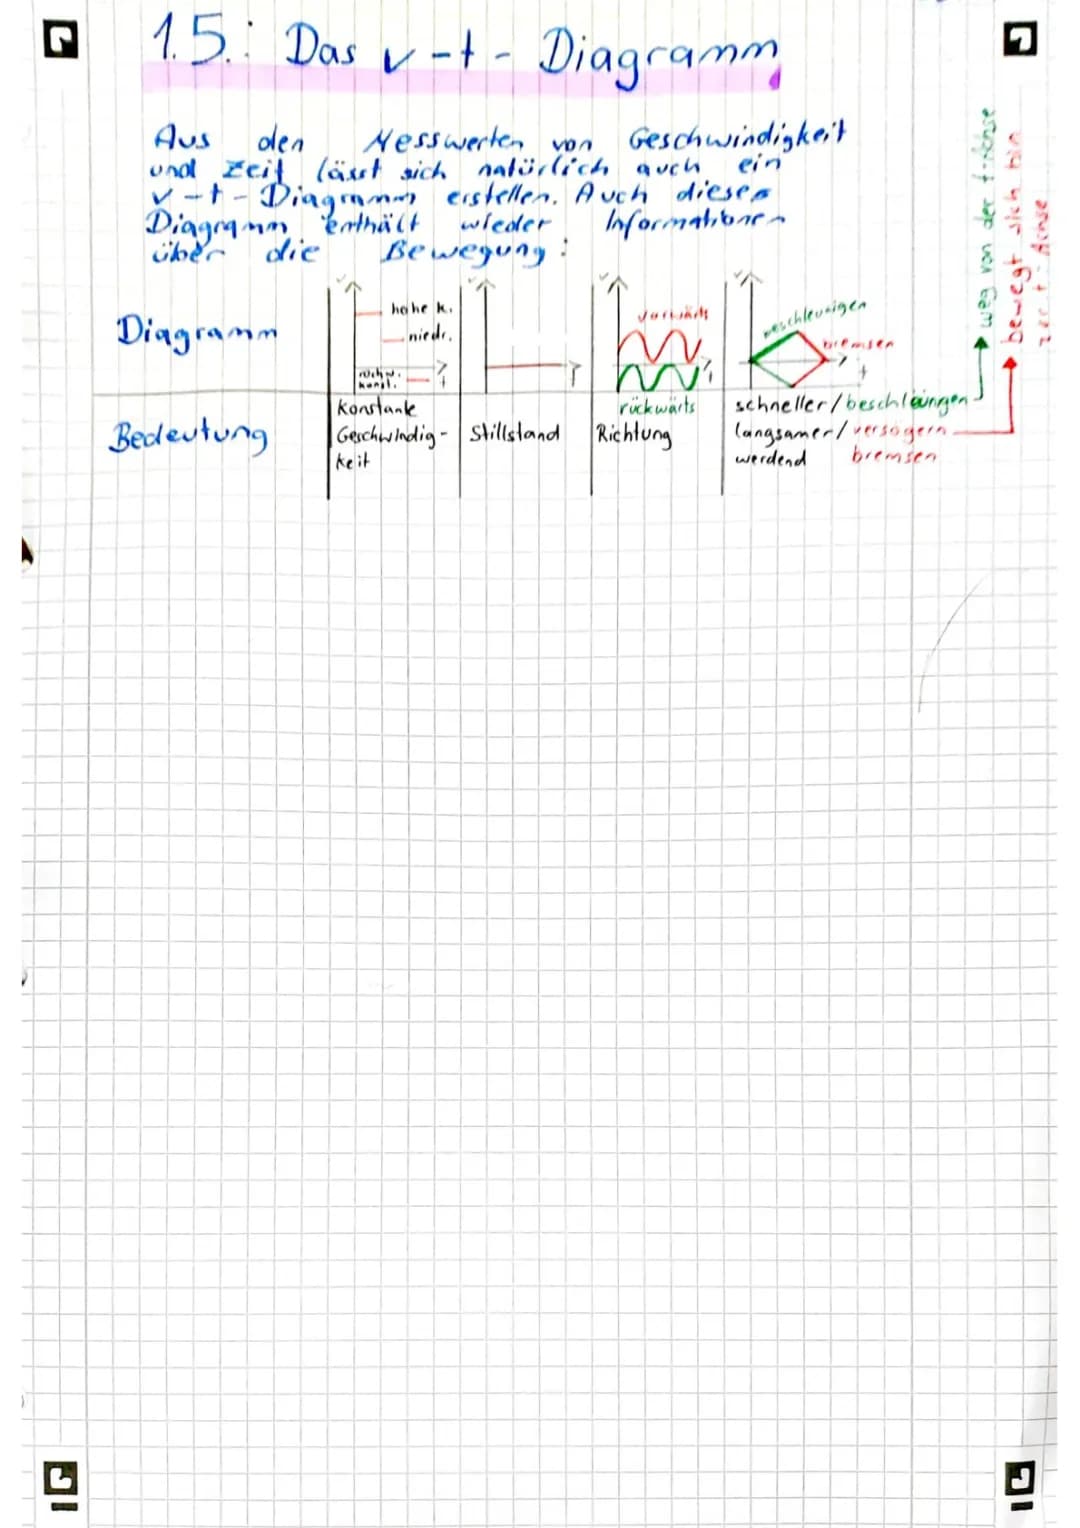 1.5.: Das v-t- Diagramm
Aus den Messwerten von Geschwindigkeit
und Zeit lässt sich natürlich auch ein
v-t-Diagramm erstellen. Auch dieses
Diagramm enthält wieder Informationen
über die Bewegung:
Diagramm
hohe k.
niedr.
rückw.
konst.
t
vorwärts
rückwärts
beschleunigen
bremsen
t
Bedeutung
konstante
Geschwindig-
keit
Stillstand
Richtung
schneller/beschleungen
langsamer/versögern
werdend bremsen
weg von der t-Achse
bewegt sich hin
zur t-Achse